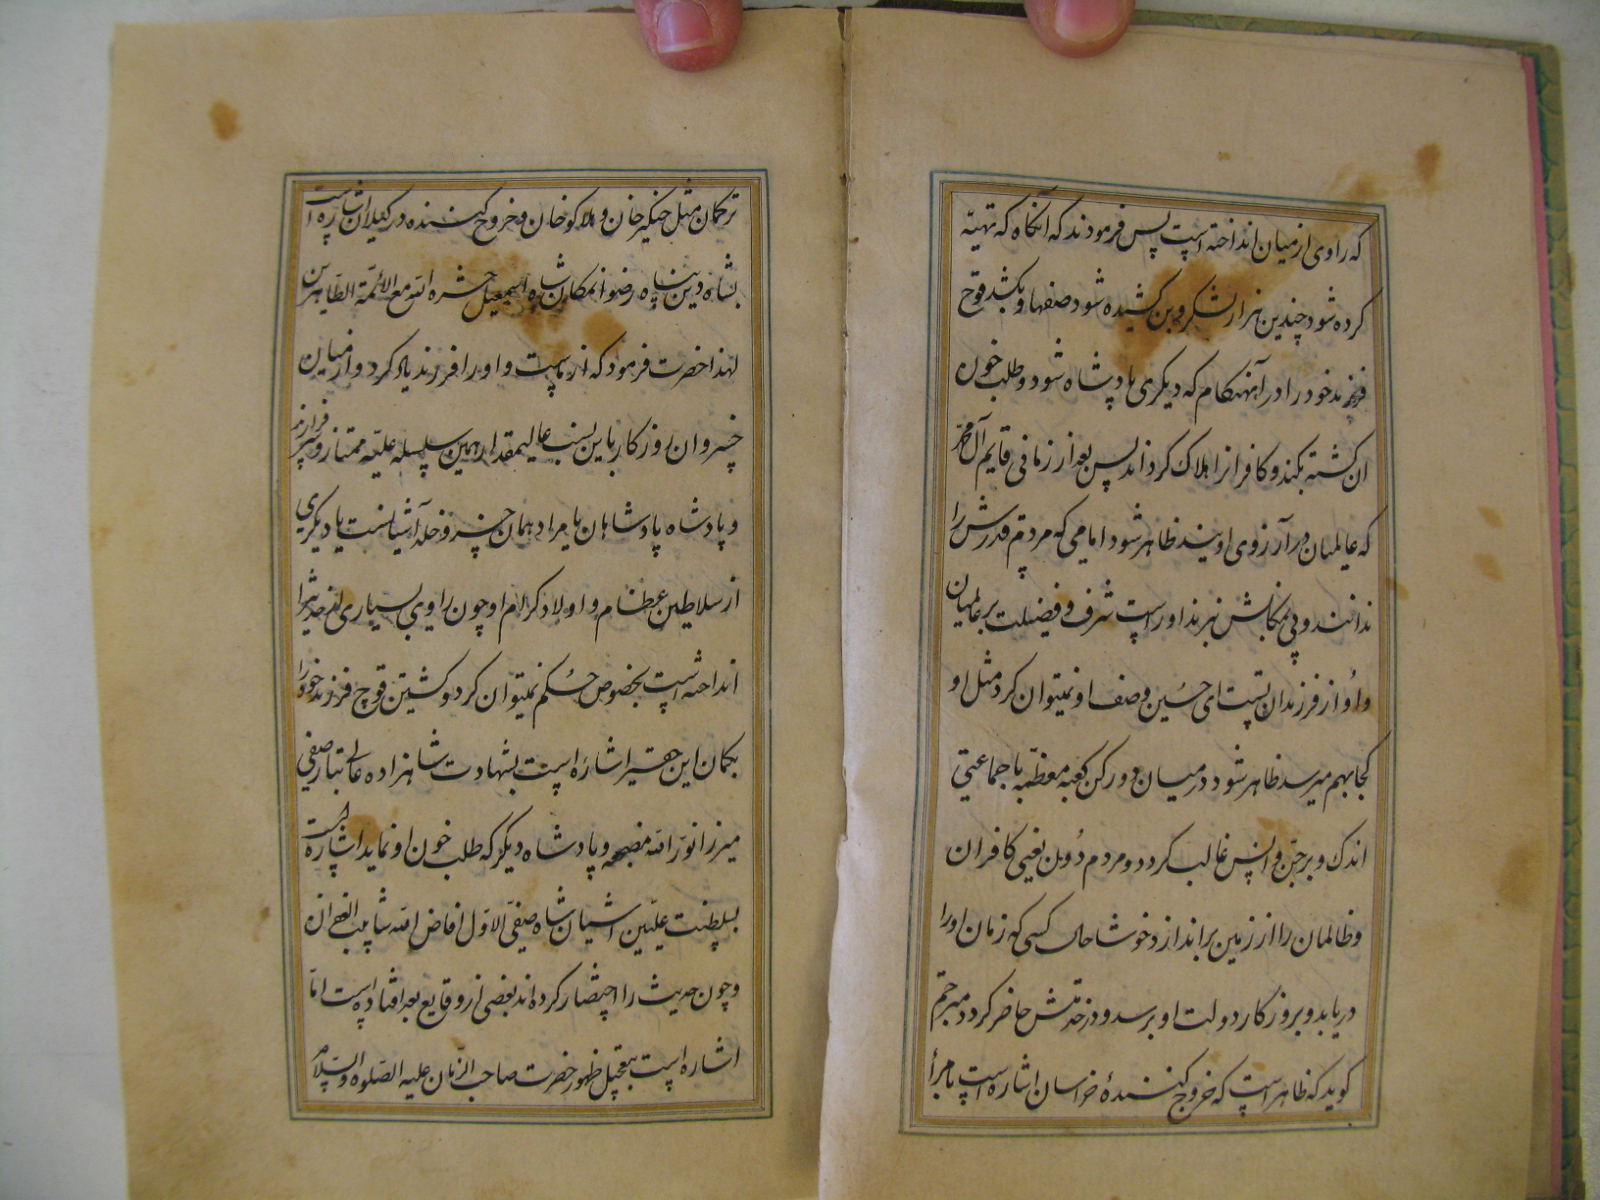 که راوی از میان انداخته است پس فرمودند که آنکاه که تهیته
کرده شود چندین هزار لشکر و بن کشیده شود صفها و بکشد قوج
فرزند خود را در آنهنکام که دیکری پادشاه شود و طلب خون
ان کشته بکند و کافرانرا هلاک کرداند پس بعد از زمانی قایم آل محمد
که عالمیان در آرزوی اویند ظاهر شود امامی که مردم قدرش را
ندانند و پی بمکانش نبرند اوراست شرف و فضیلت بر عالمیان
و او از فرزندان تست ای حسین وصف او نمیتوان کرد مثل او
کجا بهم میرسد ظاهر شود در میان دو رکن کعبه معظمه با جماعتی
اندک و بر جن و انس غالب کردد و مردم دون یعنی کافران
و ظالمان را از زمین براندازد خوشا حال کسی که زمان او را
دریابد و بروزکار دولت او برسد و در خدمتش حاضر کردد مترجم
کوید که ظاهر است که خروج کنندهٔ خراسان اشاره است بامرأ
ترکمان مثل چنکیز خان و هلاکو خان و خروج کننده در کیلان اشاره است
بشاه دین پناه رضوانمکان شاه اسمعیل حشره الله مع الائمة الطاهرین
لهذا حضرت فرمود که از ماست و او را فرزند یاد کرد و از میان
خسروان روزکار باین نسب عالیمقدار همین سلسله علیه ممتاز و سرفرازند
و پادشاه پادشاهان یا مراد همان خسرو خلد آشیانست یا دیکری
از سلاطین عظام و اولاد کرام او چون راوی بسیاری از حدیث را
انداخته است بخصوص حکم نمیتوان کرد و کشتن قوچ فرزند خود را
بکمان این حقیر اشاره است بشهادت شاهزاده عالی تبار صفی
میرزا نور الله مضجعه و پادشاه دیکر که طلب خون او نماید اشاره است
بسلطنت علیین اشیان شاه صفی الاول افاض الله شآبیب الغفرانه
و چون حدیث را اختصار کرده اند بعضی از وقایع بعد افتاده است اما
اشاره است بتعجیل ظهور حضرت صاحب الزمان علیه الصلوة و السلام